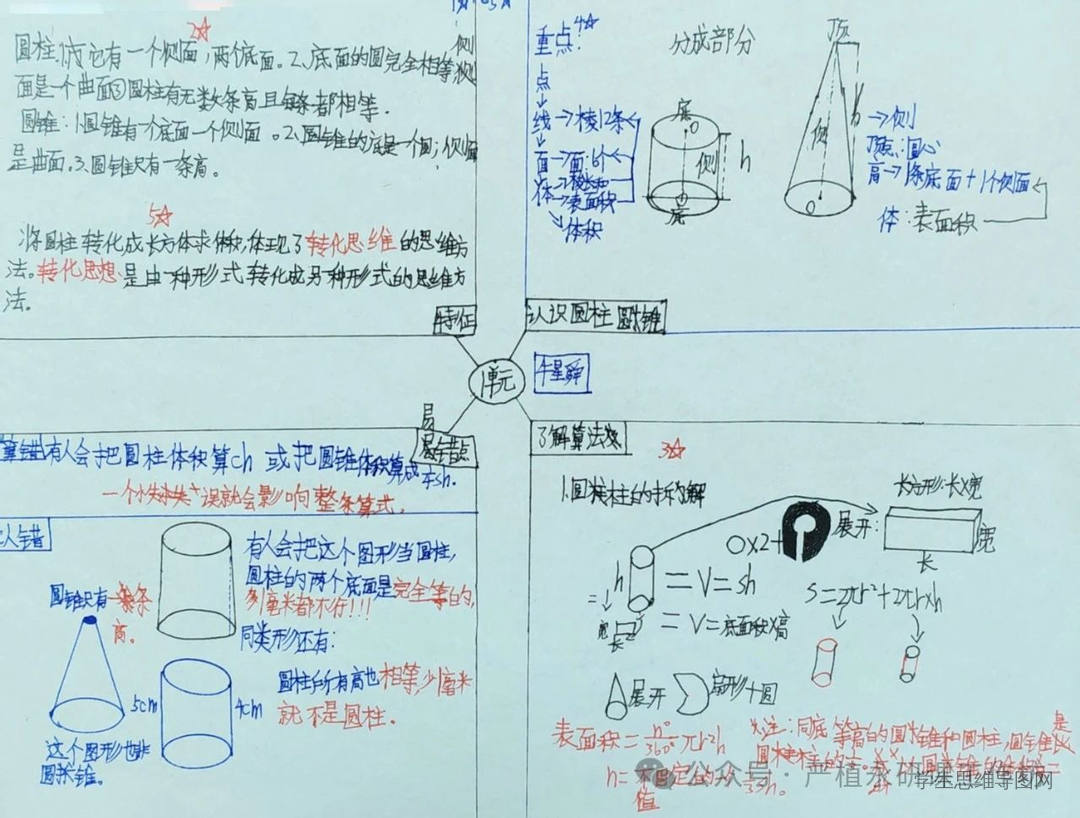 2☆
圆柱:1.它有一个侧面,两个底面。2.底面的圆完全相等,侧
面是一个曲面③圆柱有无数条高且每条都相等.
圆锥:1.圆锥有一个底面一个侧面。2.圆锥的底是一个圆;侧面
是曲面.3.圆锥只有一条高。
5☆
将圆柱转化成长方体求体积,体现了转化思维的思维方
法。转化思想是由一种形式转化成另一种形式的思维方
法。
特征
4☆
重点:
分成部分
点
线→棱12条
面→面:6个
体→表面积
体积
底
O
侧
底
h
顶
侧
h
O
→侧
顶点:圆心
高→1条底面+1个侧面
体:表面积
认识圆柱圆锥
单元
牛星舜
易错点
算错
有人会把圆柱体积算ch或把圆锥体积算成
一个小小失误就会影响整条算式.
认错
圆锥只有一条
高。
有人会把这个图形当圆柱,
圆柱的两个底面是完全等的,
多1毫米都不行!!!
同类形还有:
圆柱的所有高也相等,少1毫米
就不是圆柱.
5cm
4cm
这个图形也非
圆锥。
了解算法
3☆
展开:
长方形:长×宽
宽
长
O×2+
h
=V=sh
=V=底面积×高
宽
长
S=2πr²+2πr×h
展开
扇形+圆
表面积=n°/360°πr²h
关注:同底等高的圆锥和圆柱,圆锥是
公众号·严植永的课
学生思维导图网